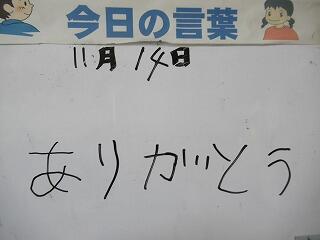 今日の言葉
11月14日
ありがとう